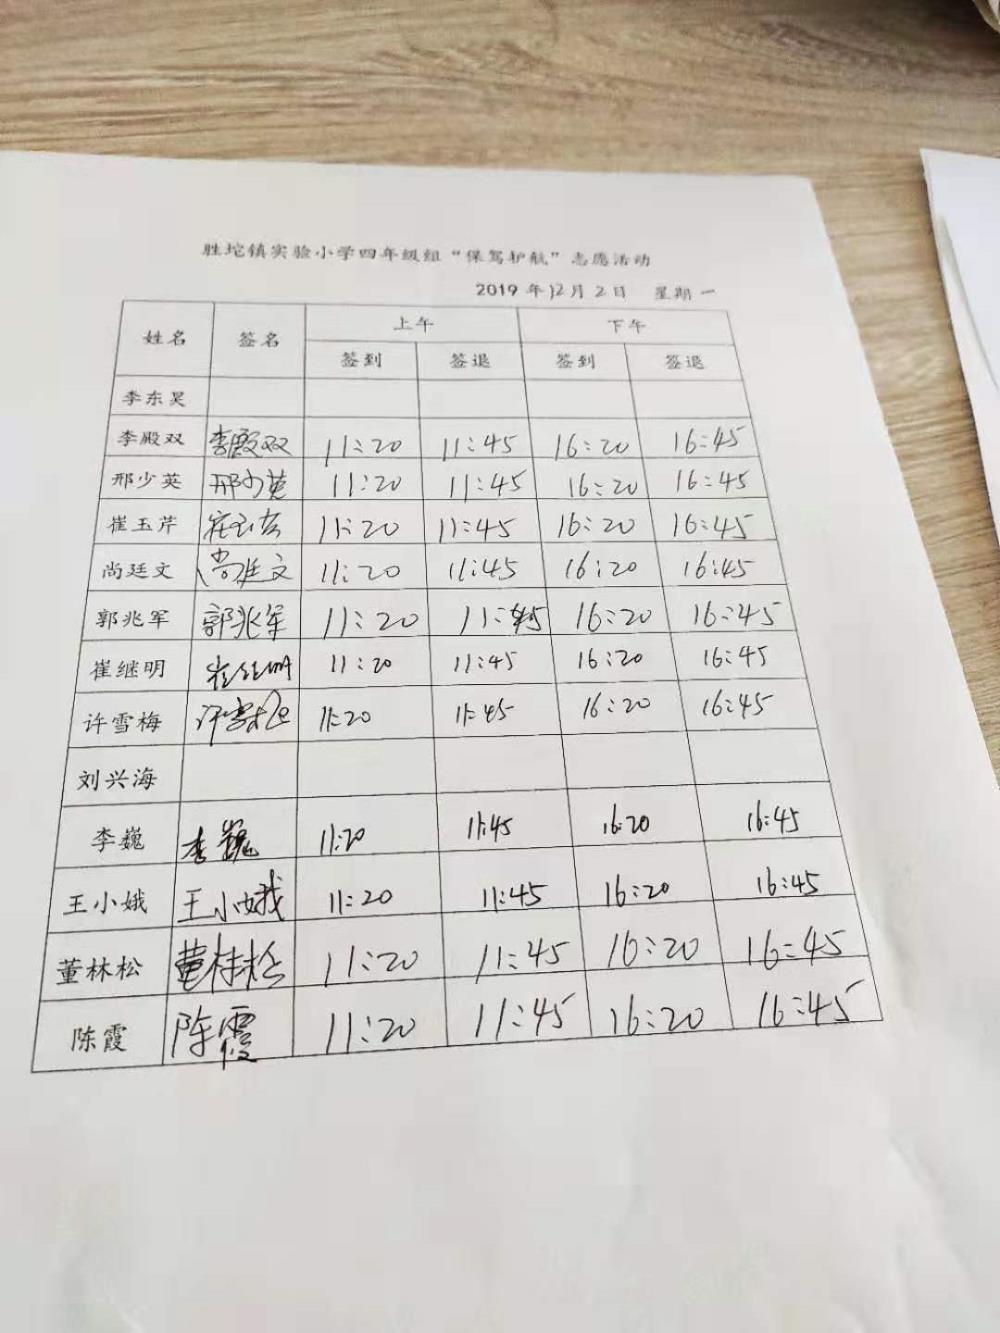 胜坨镇实验小学四年级组“保驾护航”志愿活动
2019 年 12月 2日 星期一
姓名 签名 上午 下午
签到 签退 签到 签退
李东昊
李殿双 李殿双 11:20 11:45 16:20 16:45
邢少英 邢少英 11:20 11:45 16:20 16:45
崔玉芹 崔玉芹 11:20 11:45 16:20 16:45
尚廷文 尚廷文 11:20 11:45 16:20 16:45
郭兆军 郭兆军 11:20 11:45 16:20 16:45
崔继明 崔继明 11:20 11:45 16:20 16:45
许雪梅 许雪梅 11:20 11:45 16:20 16:45
刘兴海
李巍 李巍 11:20 11:45 16:20 16:45
王小娥 王小娥 11:20 11:45 16:20 16:45
董林松 董林松 11:20 11:45 16:20 16:45
陈霞 陈霞 11:20 11:45 16:20 16:45